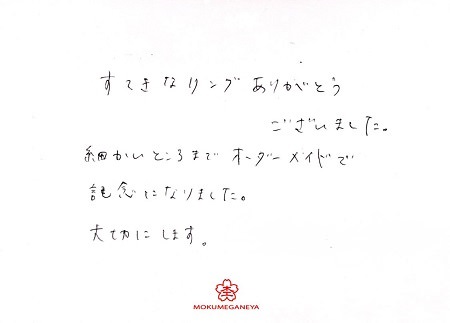 すてきなリングありがとう
ございました。
細かいところまでオーダーメイドで
記念になりました。
大切にします。
MOKUMEGANEYA